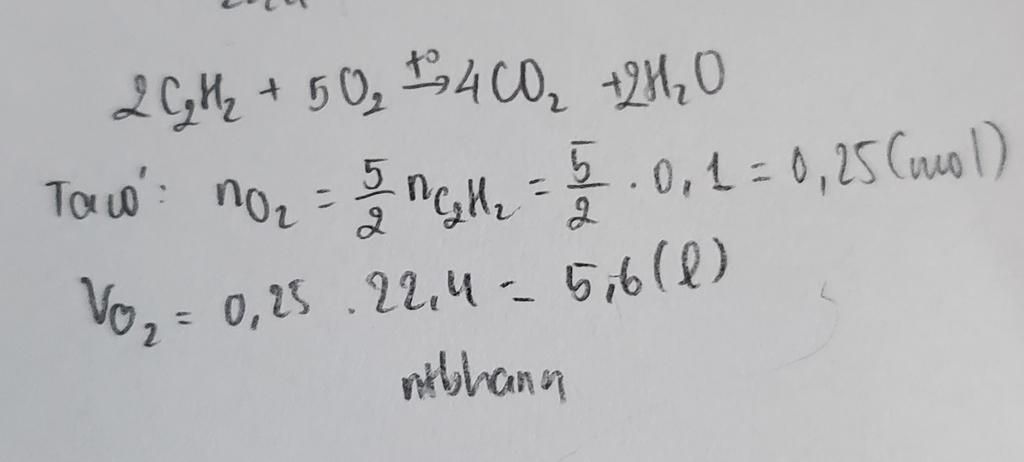 2C₂H₂ + 5O₂ →t° 4CO₂ + 2H₂O
Ta có: nO₂ = 5/2 nC₂H₂ = 5/2 . 0,1 = 0,25 (mol)
VO₂ = 0,25 . 22,4 = 5,6 (l)
ntbhann